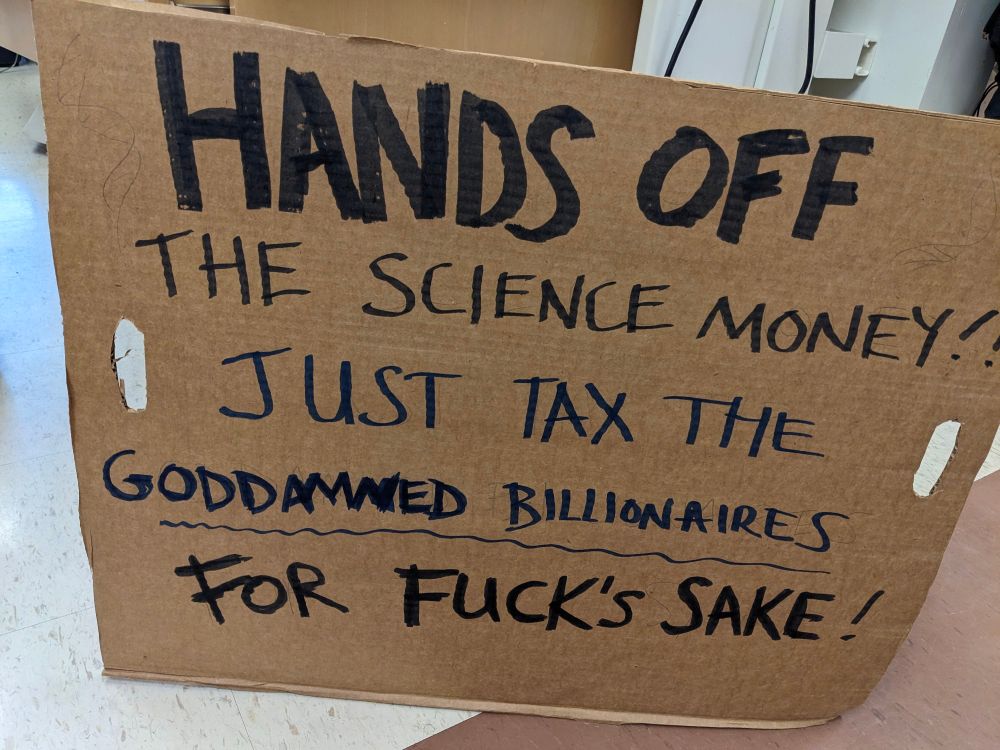 HANDS OFF
THE SCIENCE MONEY!!
JUST TAX THE
GODDAMNED BILLIONAIRES
FOR FUCK'S SAKE!